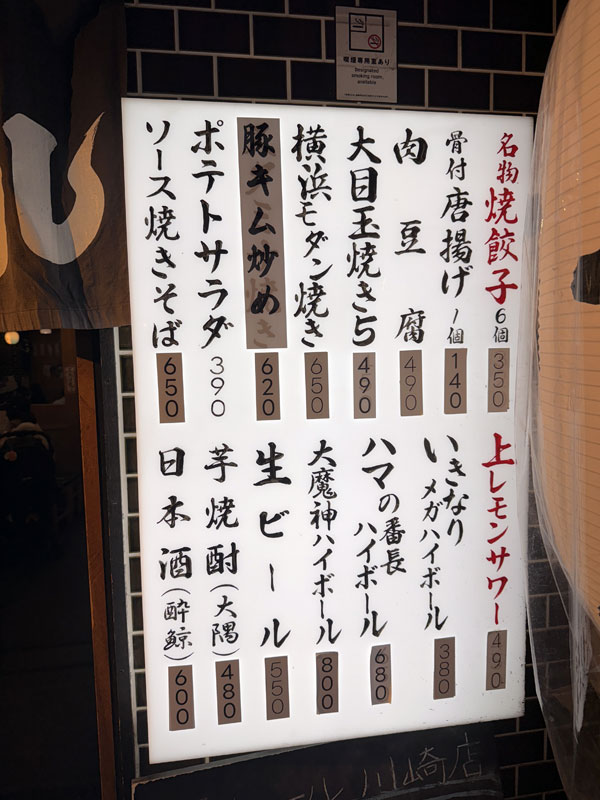 喫煙専用室あり
Designated
smoking room
available
名物焼餃子6個 350
骨付唐揚げ1個 140
肉豆腐 490
大目玉焼き5 490
横浜モダン焼き 650
豚キム炒め 620
ポテトサラダ 390
ソース焼きそば 650
上レモンサワー 490
いきなり
メガハイボール 380
ハマの番長
ハイボール 680
大魔神ハイボール 800
生ビール 550
芋焼酎(大隅) 480
日本酒(酔鯨) 600
川崎店